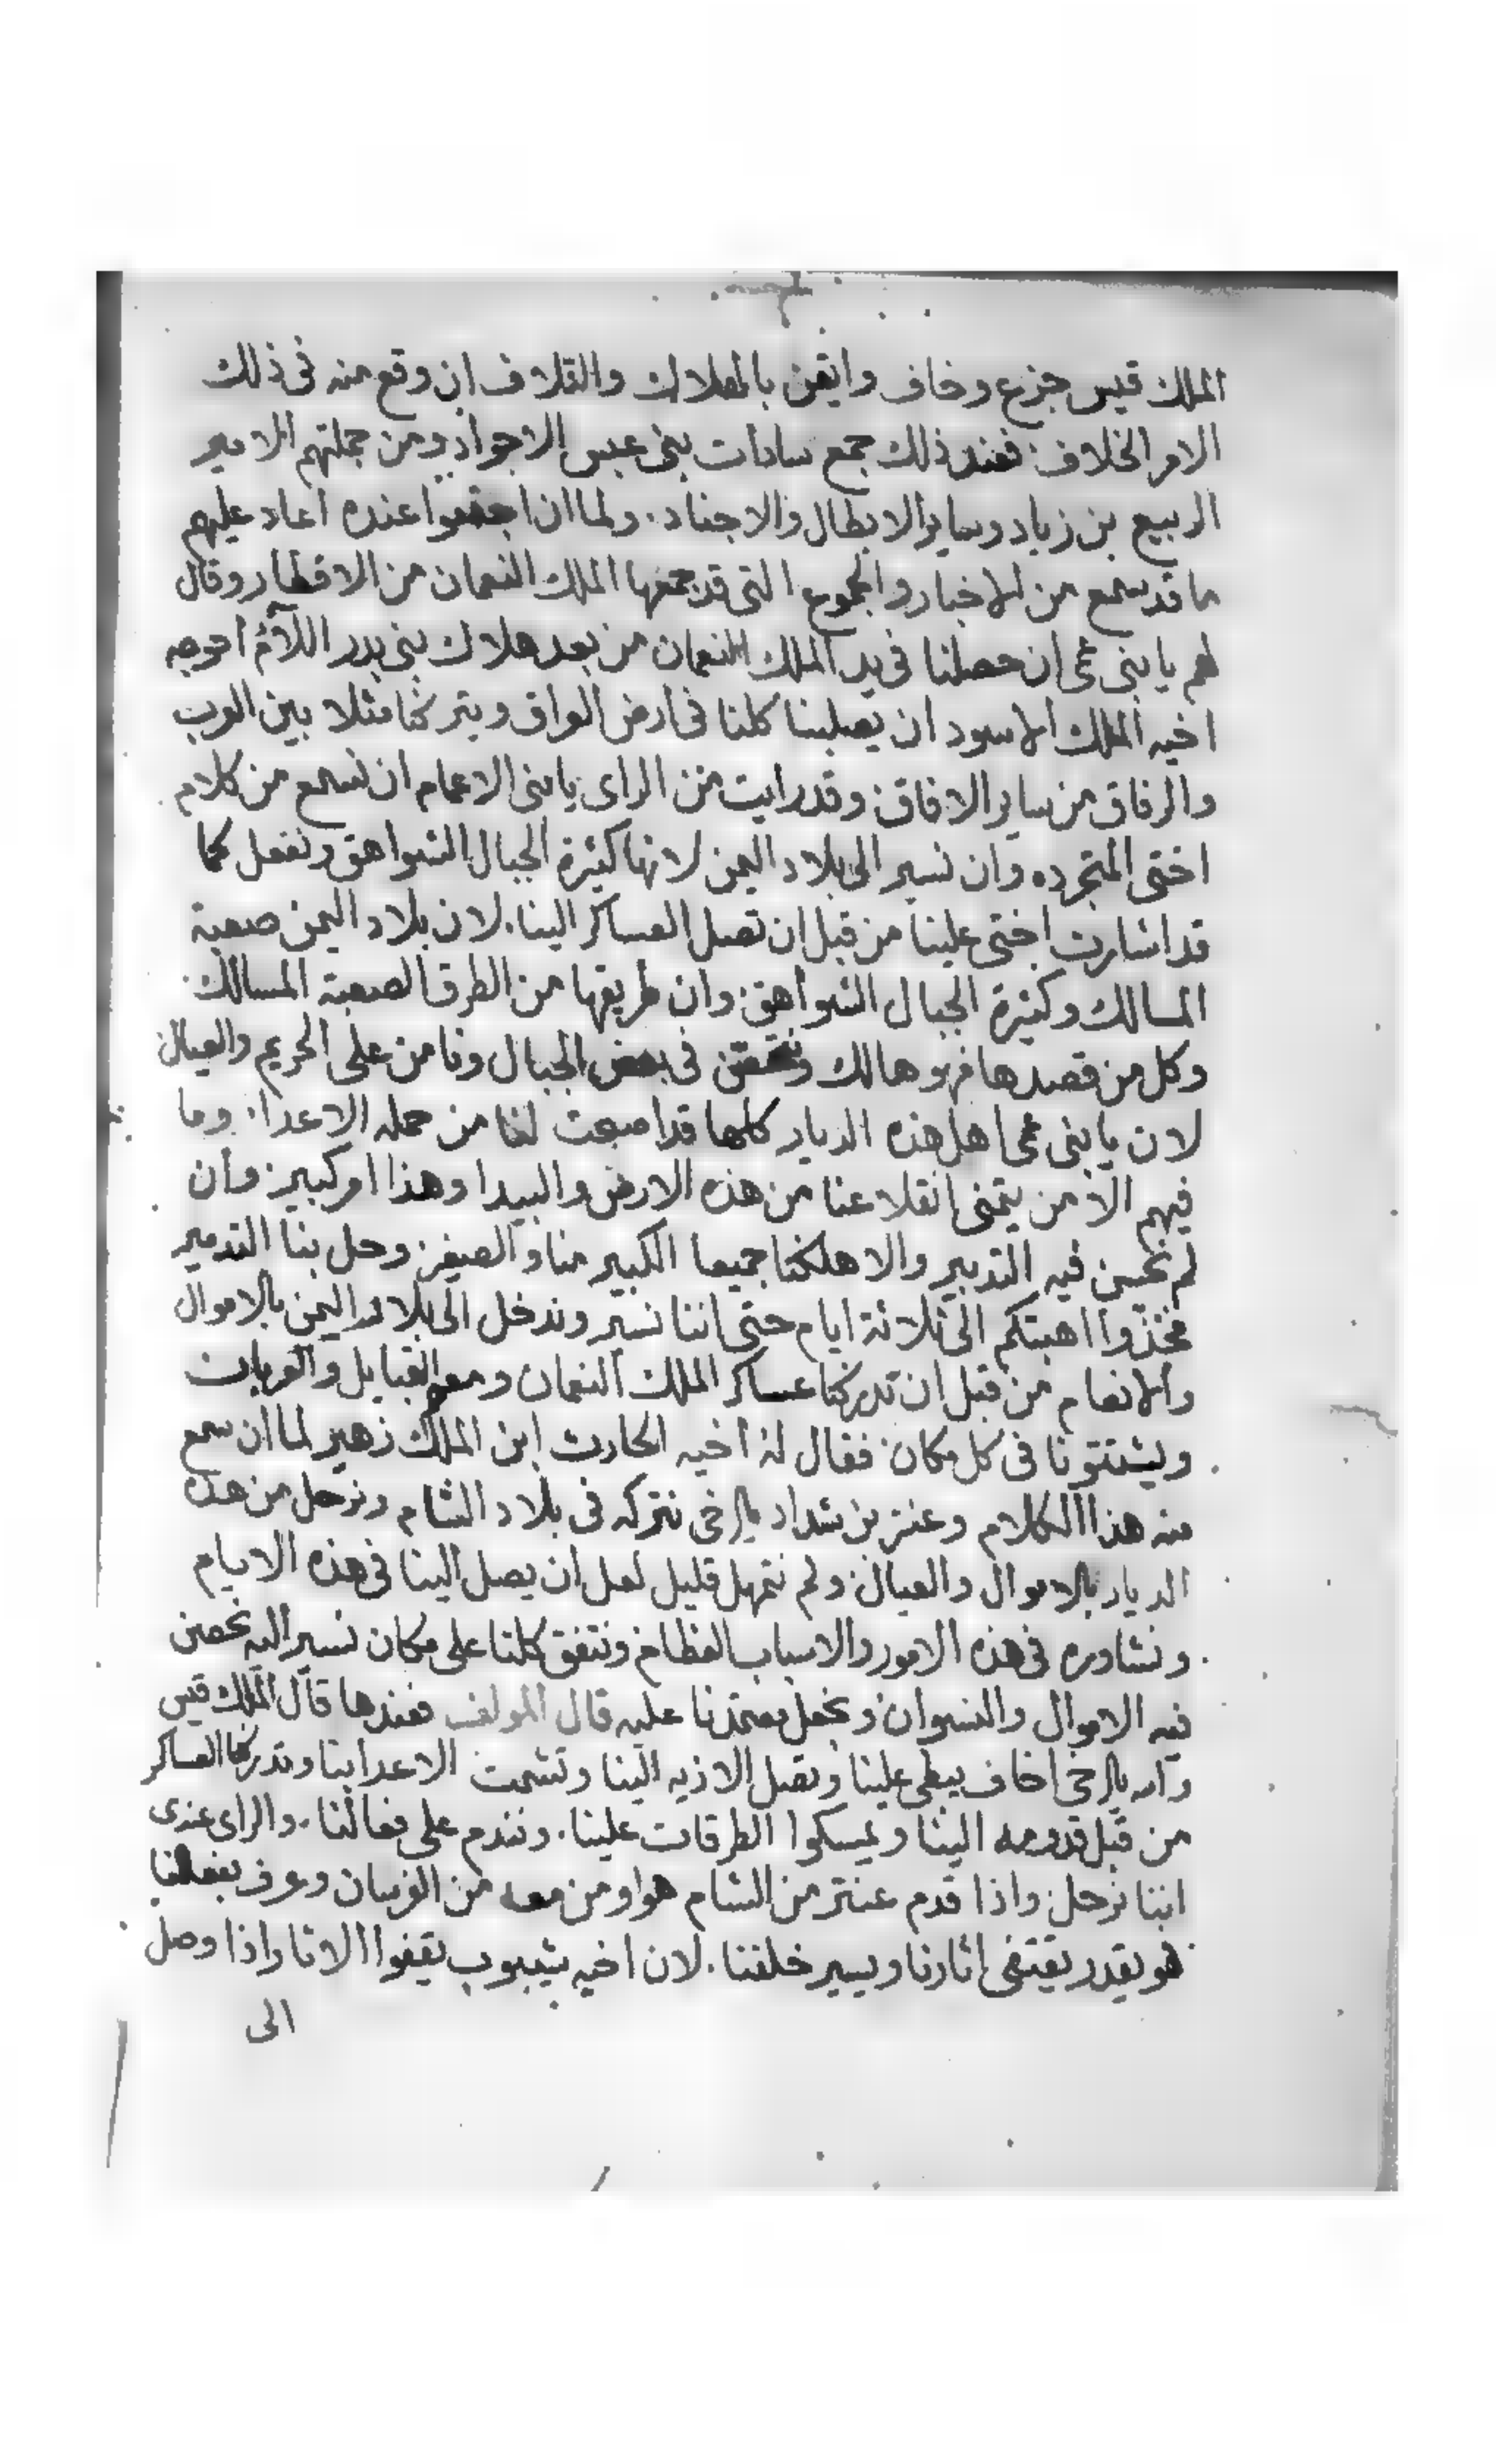 الملك قيس جزع وخاف وايقن بالهلاك والتلاف ان وقع منه فى ذلك
الامر الخلاف فعند ذلك جمع سادات بنى عبس الاجواد ومن جملتهم الامير
الربيع بن زياد وساير الابطال والاجناد ولما ان اجتمعوا عنده اعاد عليهم
ما قد سمع من الاخبار والجموع التى قد جمعها الملك النعمان من الاقطار وقال
لهم يا بنى عمى ان حصلنا فى يد الملك النعمان من بعد هلاك بنى بدر اللآم احوجه
اخيه الملك الاسود ان يصلبنا كلنا فى ارض العراق ويتركنا مثلا بين العرب
والرفاق من ساير الافاق وقد رايت من الراى يا بنى الاعمام ان نسمع من كلام
اختى المتجرده وان نسير الى بلاد اليمن لانها كثيرة الجبال الشواهق ونفعل كما
قد اشارت اختى علينا من قبل ان تصل العساكر الينا لان بلاد اليمن صعبة
المسالك وكثيرة الجبال الشواهق وان طريقها من الطرق الصعبة المسالك
وكل من قصدها فهو هالك ونتحصن فى بعض الجبال ونامن على الحريم والعيال
لان يا بنى عمى اهل هذه الديار كلها قد اصبحت لنا من جمله الاعدا وما
فيهم الا من يتمنى انقلاعنا من هذه الارض والبيدا وهذا امر كبير وان
لم نحسن فيه التدبير والا هلكنا جميعا الكبير منا والصغير وحل بنا التدمير
فخذوا اهبتكم الى ثلاثة ايام حتى اننا نسير وندخل الى بلاد اليمن بالاموال
والانعام من قبل ان تدركنا عساكر الملك النعمان ومعهم القبايل والعربان
ويشتتونا فى كل مكان فقال له اخيه الحارث ابن الملك زهير لما ان سمع
منه هذا الكلام وعنتر بن شداد يا اخى نتركه فى بلاد الشام ونرحل من هذه
الديار بالاموال والعيال ولم نتمهل قليل لعل ان يصل الينا فى هذه الايام
ونشاوره فى هذه الامور والاسباب العظام ونتفق كلنا على مكان نسير اليه نحصن
فيه الاموال والنسوان ونجعل معتمدنا عليه قال المولف فعندها قال الملك قيس
والله يا اخى اخاف يبطى علينا وتصل الاذيه الينا وتشمت الاعدا بنا وتدركنا العساكر
من قبل قدومه الينا ويمسكوا الطرقات علينا ونندم على فعالنا والراى عندى
اننا نرحل واذا قدم عنتر من الشام هو ومن معه من الفرسان وعرف بفعالنا
هو يقدر يقتفى اثارنا ويسير خلفنا لان اخيه شيبوب يقفوا الاثا واذا وصل
الى